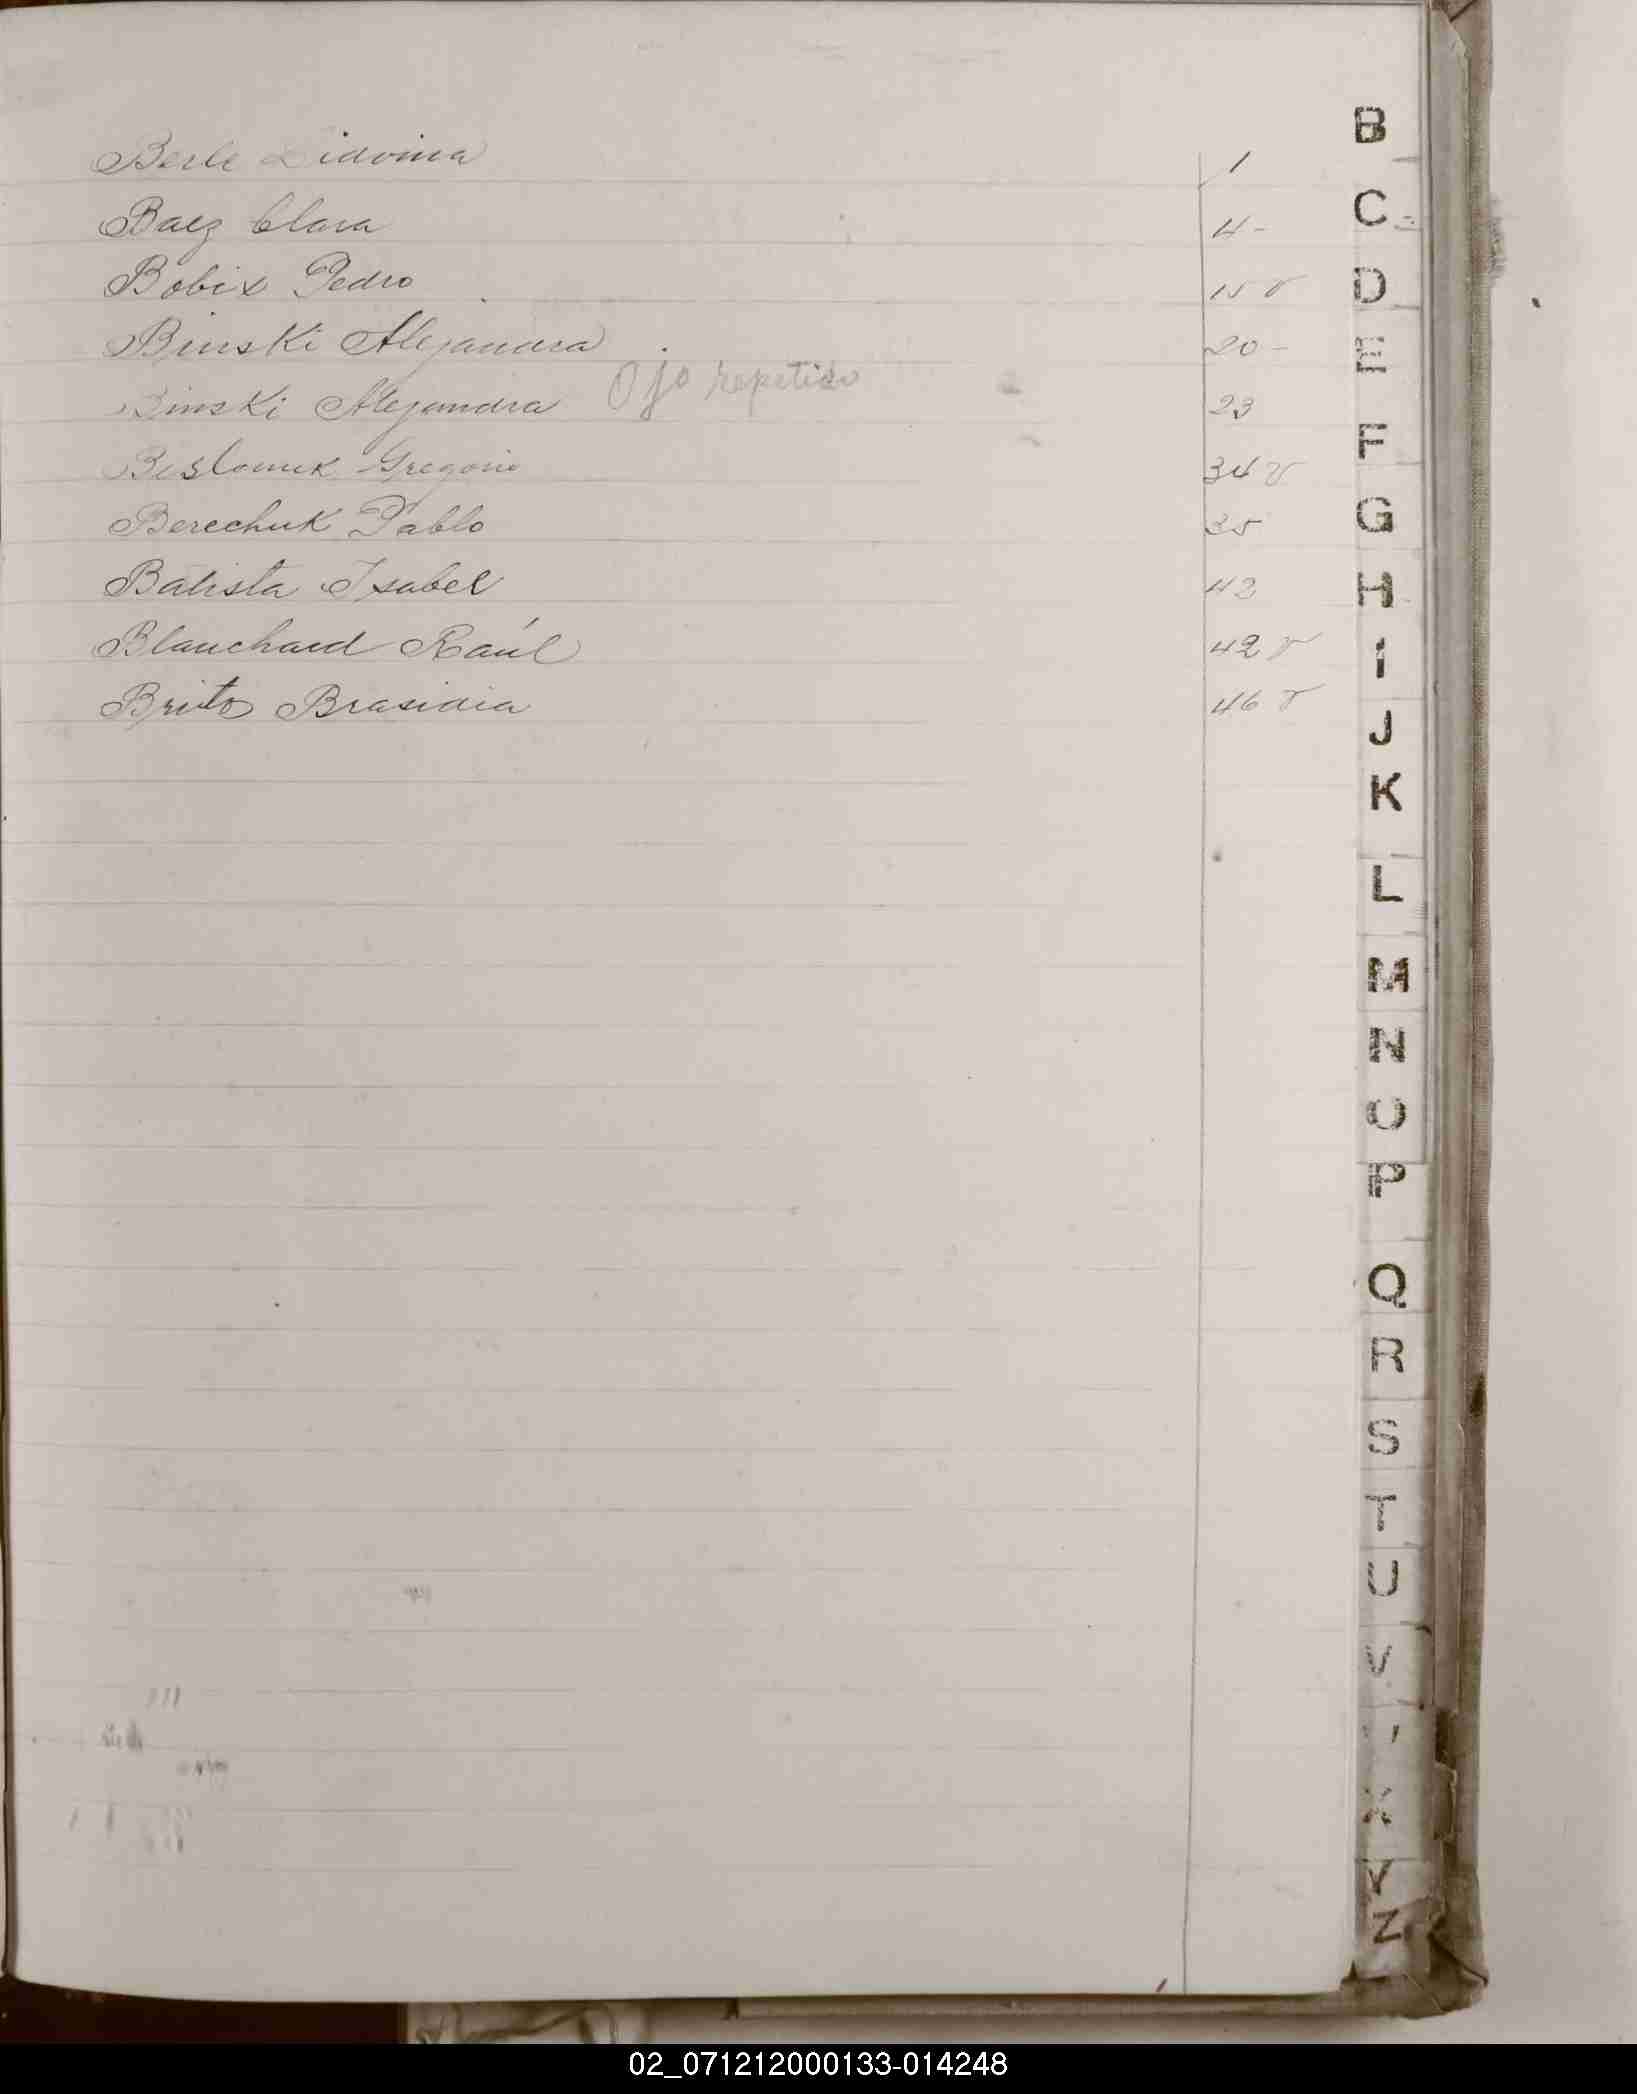 Berle Lidovina 1
Baez Clara 4-
Bobix Pedro 15 v
Binski Alejandra 20-
Ojo repetido
Binski Alejandra 23
Beslomuk Gregorio 34 v
Berechuk Pablo 35
Batista Isabel 42
Blanchard Raúl 42 v
Brito Brasidia 46 v
B
C
D
E
F
G
H
I
J
K
L
M
N
O
P
Q
R
S
T
U
V
X
Y
Z
02_071212000133-014248